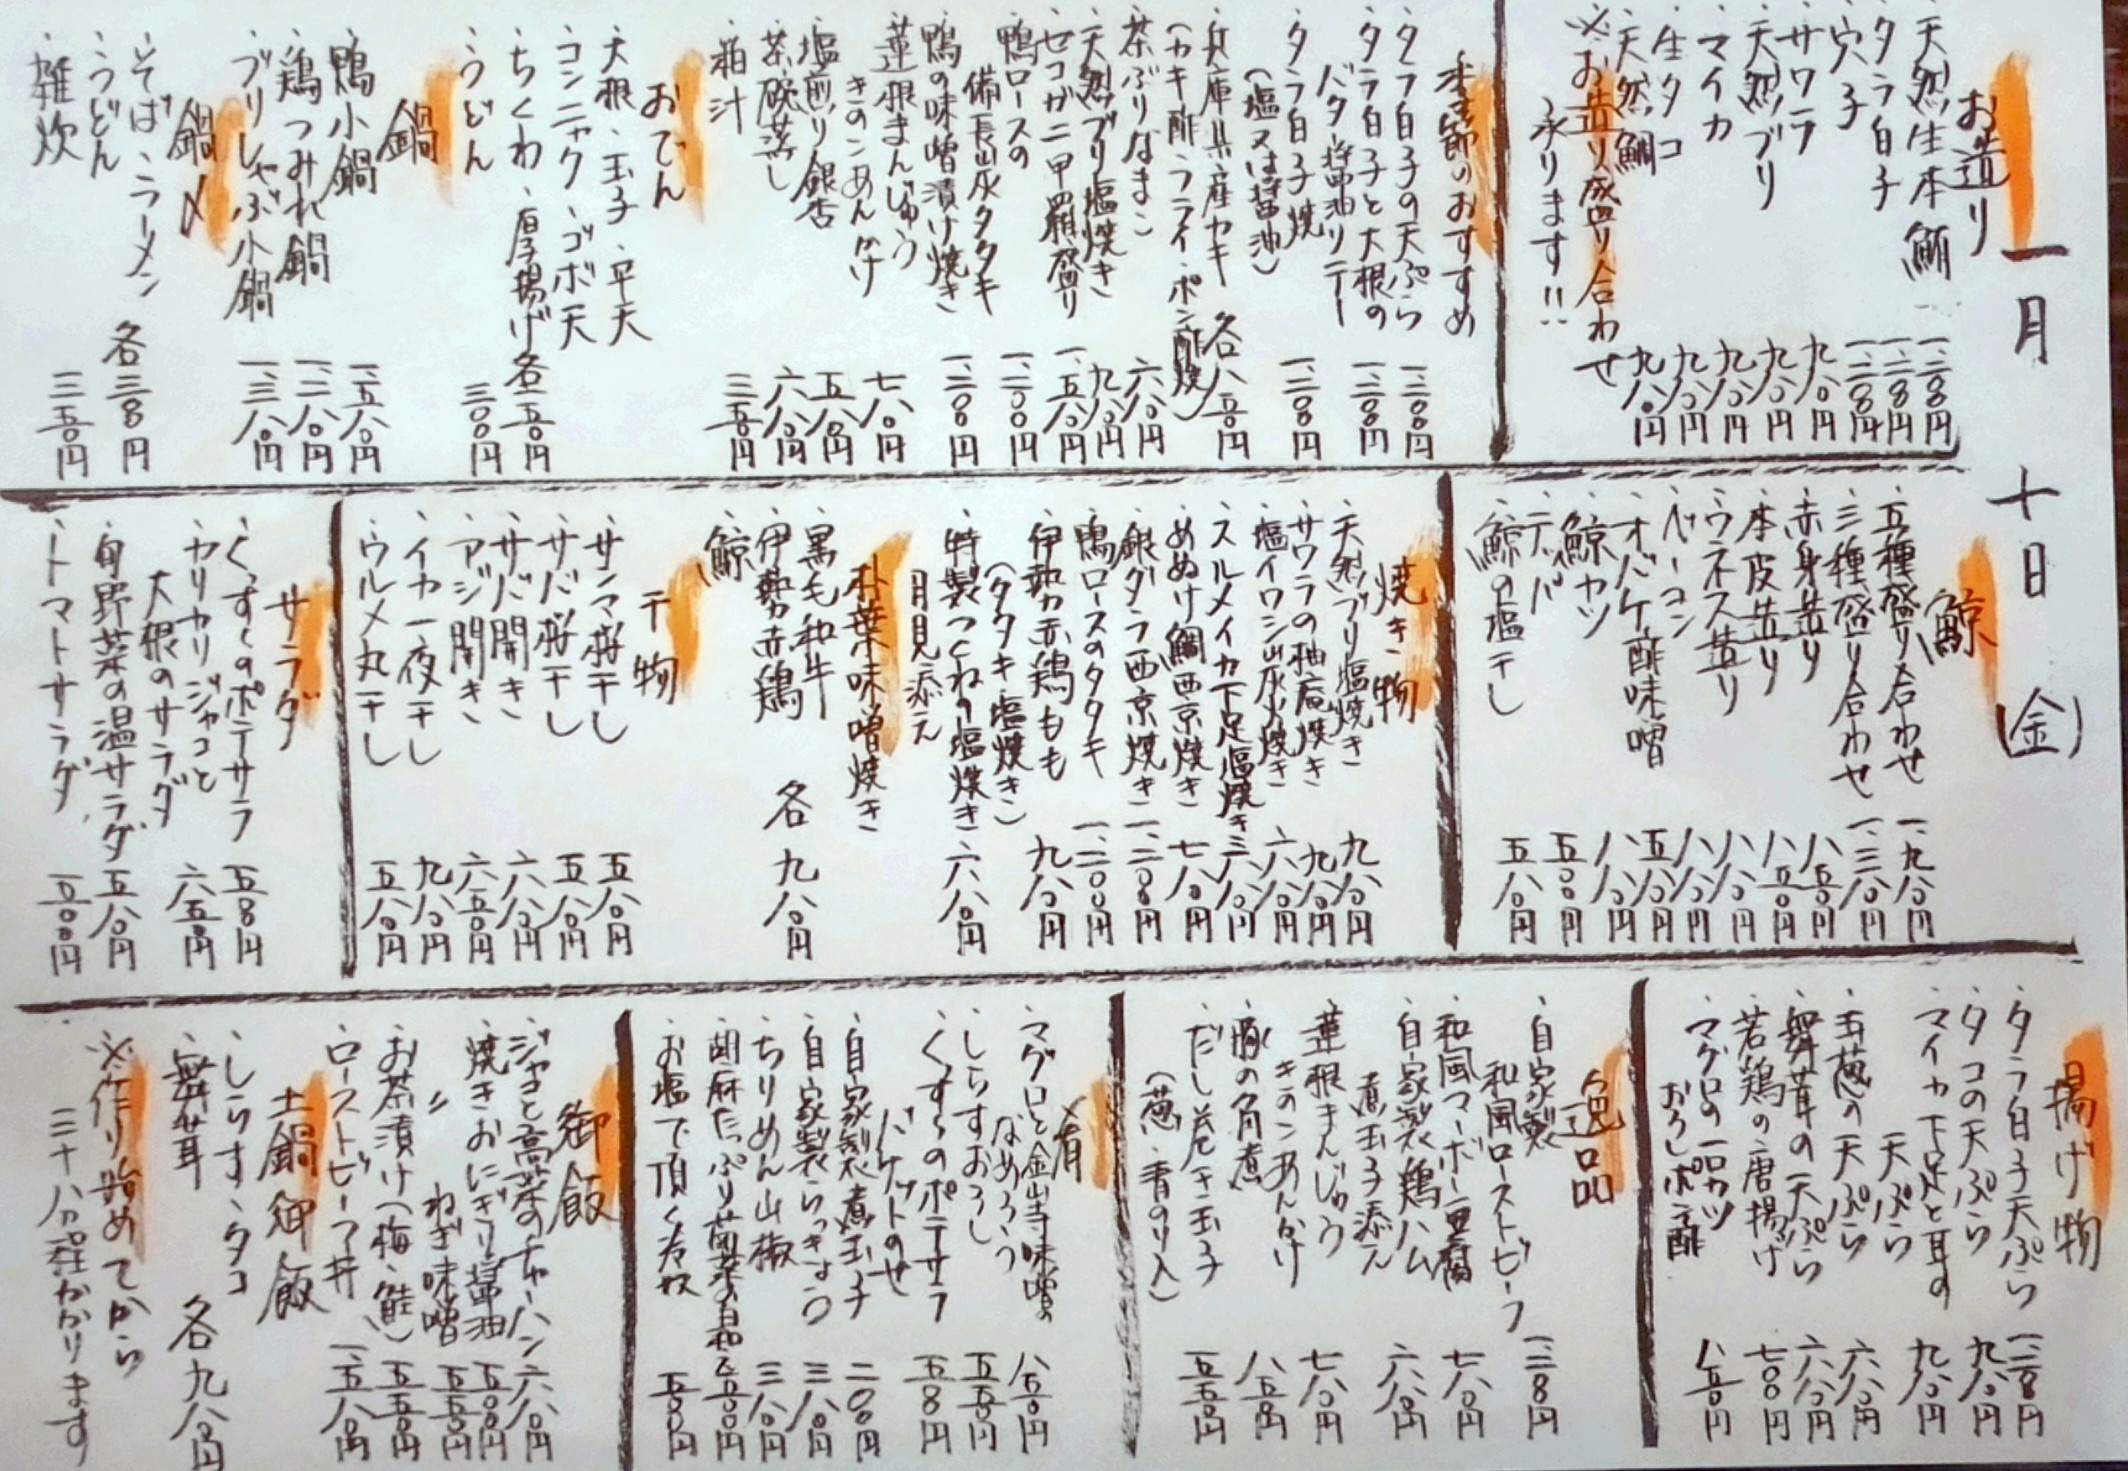 一月 十日 (金)
お造り
・天然生本鮪 一、二八〇円
・タラ白子 一、二八〇円
・穴子 一、二八〇円
・サワラ 九八〇円
・天然ブリ 九八〇円
・マイカ 九八〇円
・生タコ 九八〇円
・天然鯛 九八〇円
※お造り盛り合わせ
承ります!!
季節のおすすめ
・タラ白子の天ぷら 一、二八〇円
・タラ白子と大根の
バター醤油ソテー 一、二八〇円
・タラ白子焼
(塩又は醤油) 一、二八〇円
・兵庫県産カキ 各八五〇円
(カキ酢・フライ・ポン酢・焼)
・茶ぶりなまこ 六八〇円
・天然ブリ塩焼き 九八〇円
・セコガニ甲羅盛り 一、五八〇円
・鴨ロースの
備長炭タタキ 一、二〇〇円
・鴨の味噌漬け焼き 一、二〇〇円
・蓮根まんじゅう
きのこあんかけ 七八〇円
・塩煎り銀杏 五八〇円
・茶碗蒸し 六八〇円
・粕汁 三五〇円
おでん
・大根・玉子・平天
・コンニャク・ゴボ天
・ちくわ・厚揚げ 各二五〇円
・うどん 三〇〇円
鍋
・鴨小鍋 一、五八〇円
・鶏つみれ鍋 一、二八〇円
・ブリしゃぶ小鍋 一、三八〇円
鍋〆
・そば・ラーメン
・うどん 各三五〇円
・雑炊 三五〇円
鯨
・五種盛り合わせ 一、九八〇円
・三種盛り合わせ 一、三八〇円
・赤身造り 八五〇円
・本皮造り 八五〇円
・ウネス造り 八八〇円
・ベーコン 八八〇円
・オバケ酢味噌 五八〇円
・鯨カツ 八八〇円
・テッパ 五〇〇円
・鯨の塩干し 五八〇円
焼き物
・天然ブリ塩焼き 九八〇円
・サワラの柚庵焼き 九八〇円
・塩イワシ炭火焼き 六八〇円
・スルメイカ下足塩焼き 三八〇円
・めぬけ鯛西京焼き 七八〇円
・銀ダラ西京焼き 一、二八〇円
・鴨ロースのタタキ 一、二〇〇円
・伊勢赤鶏もも
(タタキ・塩焼き) 九八〇円
・特製つくねの塩焼き 六八〇円
月見添え
朴葉味噌焼き
・黒毛和牛
・伊勢赤鶏 各九八〇円
・鯨
干物
・サンマ桜干し 五八〇円
・サバ桜干し 五八〇円
・サバ開き 六八〇円
・アジ開き 六五〇円
・イカ一夜干し 九八〇円
・ウルメ丸干し 五八〇円
サラダ
・くすくすのポテサラ 五八〇円
・カリカリジャコと
大根のサラダ 六五〇円
・旬野菜の温サラダ 五八〇円
・トマトサラダ 五〇〇円
揚げ物
・タラ白子天ぷら 一、二八〇円
・タコの天ぷら 九八〇円
・マイカ下足と耳の
天ぷら 九八〇円
・玉葱の天ぷら 六八〇円
・舞茸の天ぷら 六八〇円
・若鶏の唐揚げ 七〇〇円
・マグロの一口カツ
おろしポン酢 八五〇円
逸品
・自家製
和風ローストビーフ 一、二八〇円
・和風マーボー豆腐 七八〇円
・自家製鶏ハム
煮玉子添え 六八〇円
・蓮根まんじゅう
きのこあんかけ 七八〇円
・豚の角煮 八五〇円
・だし巻き玉子
(葱・青のり入) 五五〇円
肴
・マグロと金山寺味噌の
なめろう 八五〇円
・しらすおろし 五五〇円
・くすくすのポテサラ
バゲットのせ 五八〇円
・自家製煮玉子 二〇〇円
・自家製らっきょう 三八〇円
・ちりめん山椒 三八〇円
・胡麻たっぷり菊菜のお和え 五〇〇円
・お塩で頂く冷奴 五〇〇円
御飯
・ジャコと高菜のチャーハン 六八〇円
・焼きおにぎり醤油 五〇〇円
・〃 ねぎ味噌 五五〇円
・お茶漬け(梅・鮭) 五五〇円
・ローストビーフ丼 一、五八〇円
土鍋御飯
・しらす・タコ
・舞茸 各九八〇円
※作り始めてから
三十分程かかります